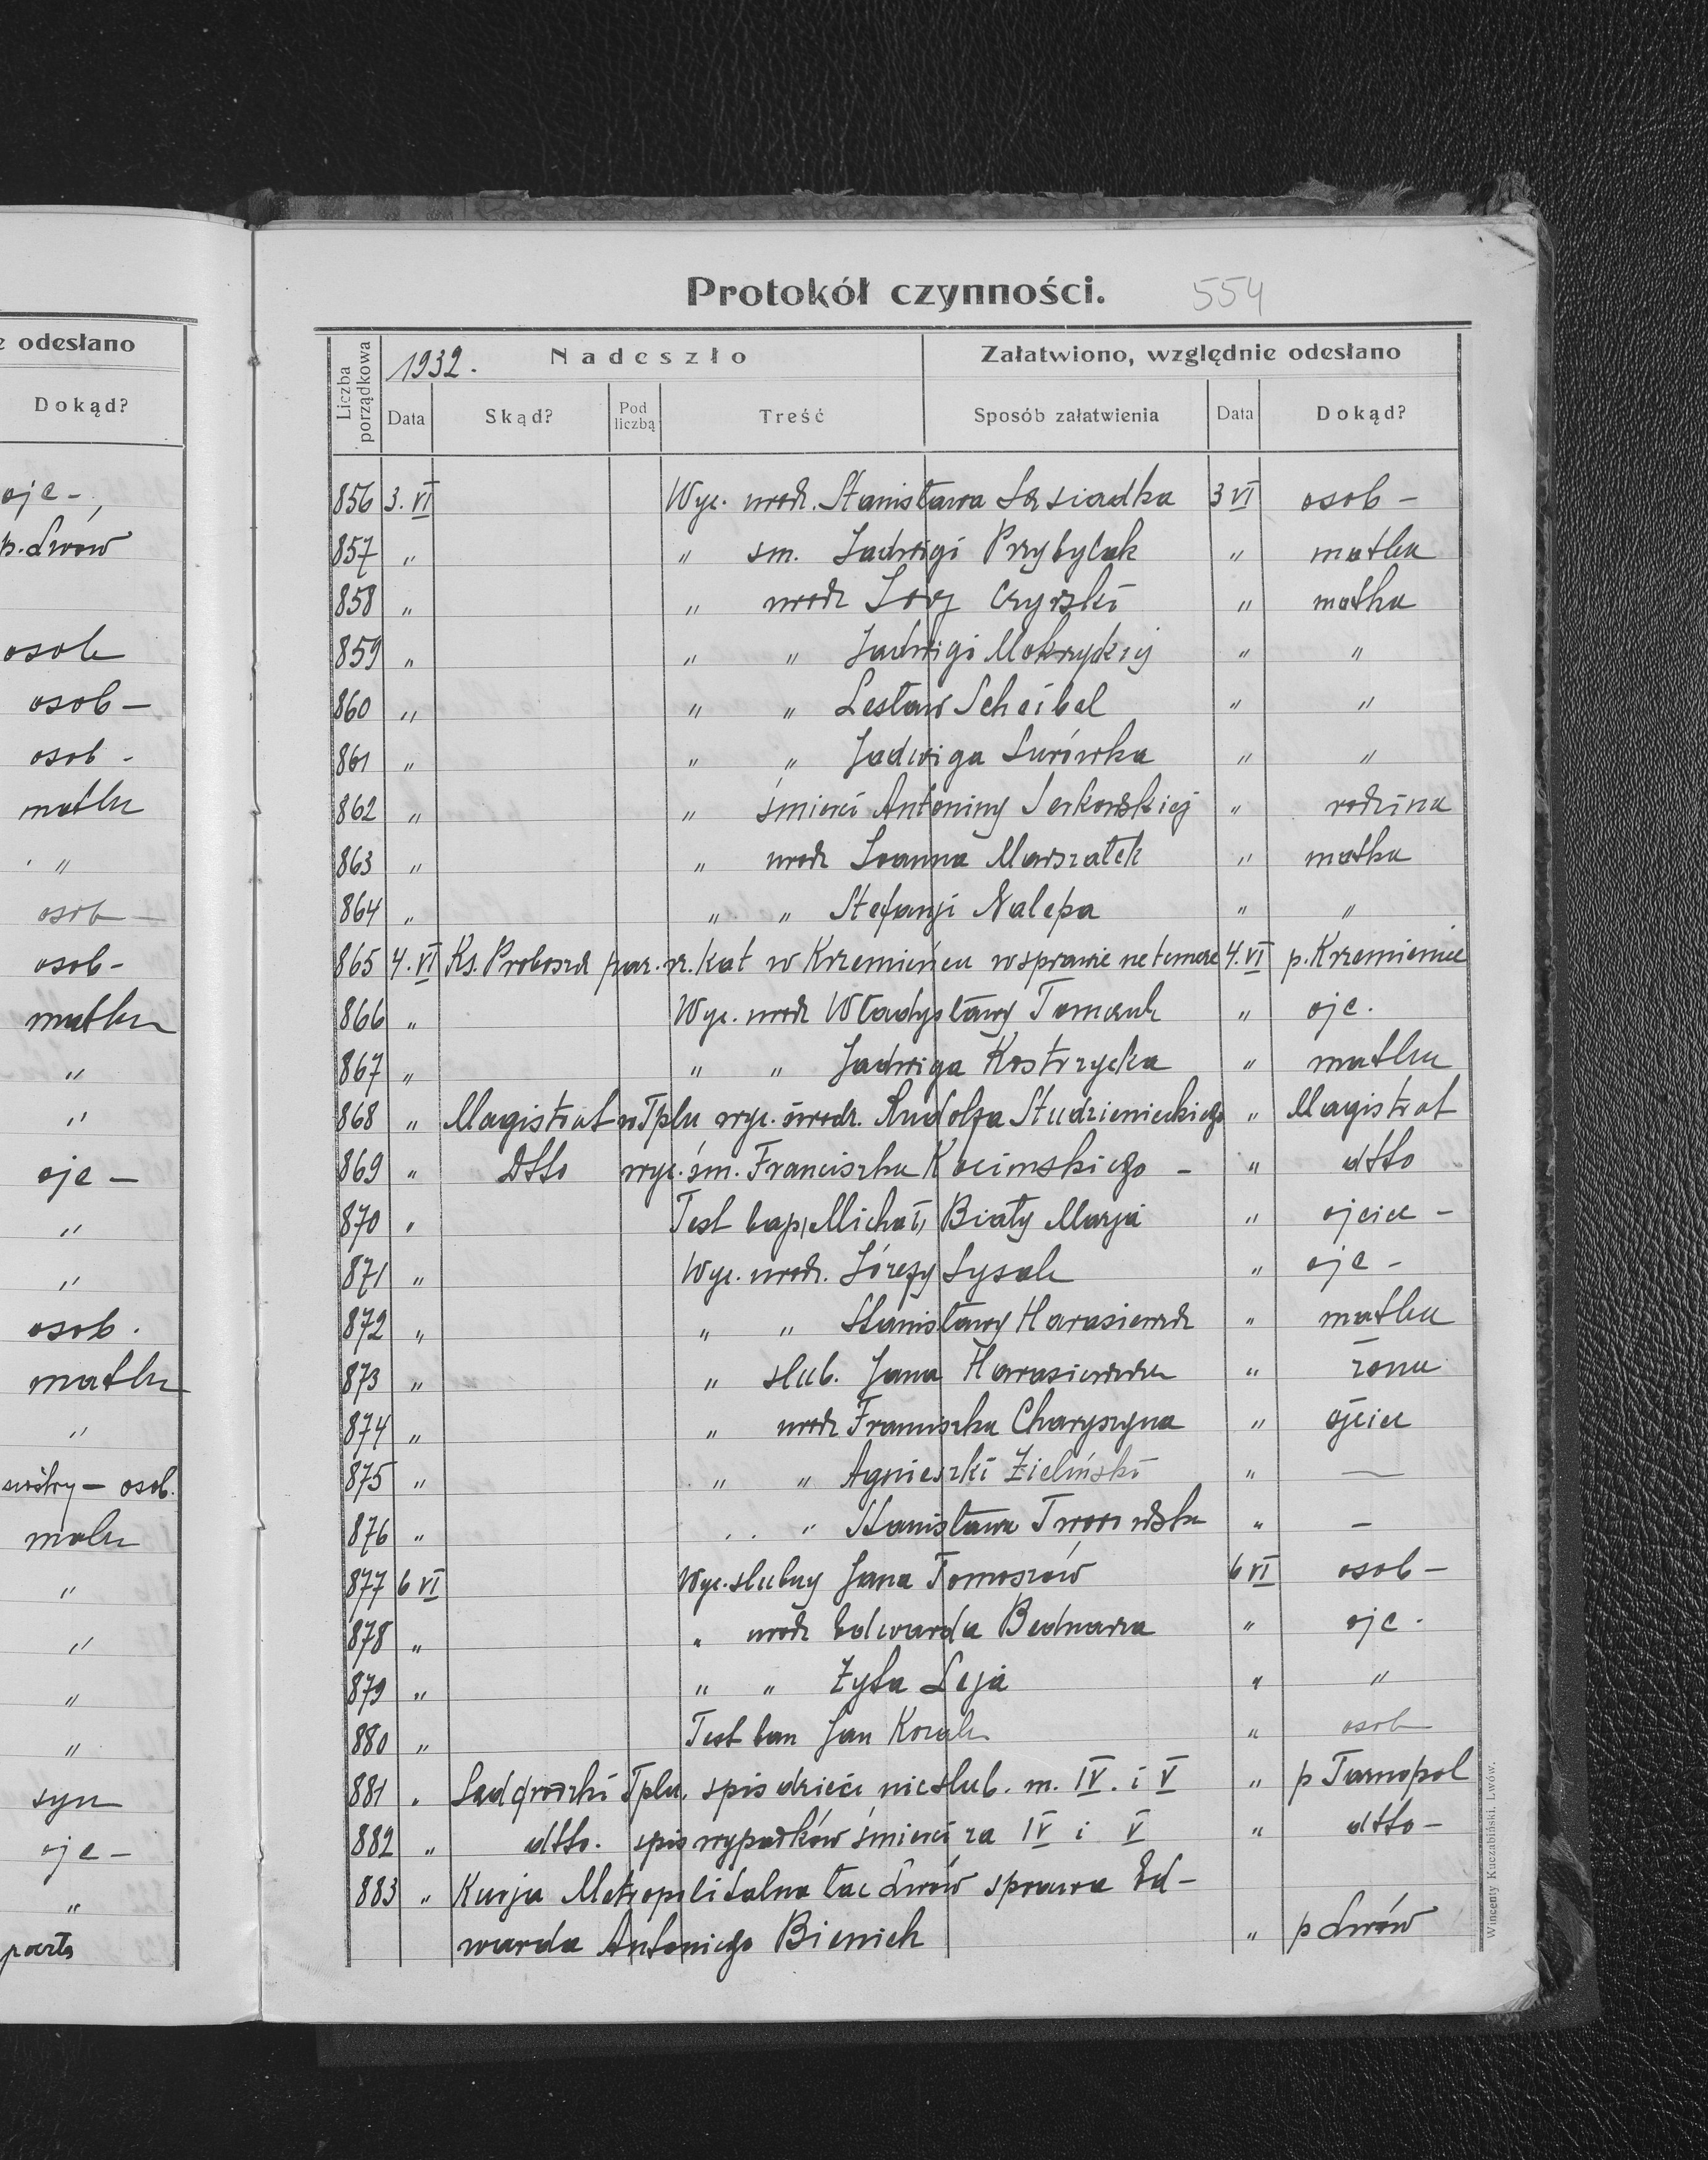 e odesłano
Dokąd?
ojc -
p. Lwów
osob
osob -
osob -
matka
"
osob -
osob -
matka
"
"
ojc -
"
"
osob.
matka
"
siostry - osob.
matka
"
"
"
"
syn
ojc -
"
poczta
Protokół czynności. 554
Liczba porządkowa
1932. Nadeszło
Załatwiono, względnie odesłano
Data Skąd? Pod liczbą Treść Sposób załatwienia Data Dokąd?
856 3. VI Wyc. urodz. Stanisława Sąsiadka 3 VI osob -
857 " " śm. Jadwigi Przybylak " matka
858 " " urodz " matka
859 " " " Jadwigi Mokrzyckiej " "
860 " " " Lesław Scheibal " "
861 " " " Jadwiga Surówka " "
862 " " śmierci Antoniny Serkowskiej " rodzina
863 " " urodz Joanna Marszałek " matka
864 " " " Stefanji Nalepa " "
865 4. VI Ks. Proboszcz par. rz. kat w Krzemieńcu w sprawie ne temere 4. VI p. Krzemieniec
866 " Wyc. urodz Władysławy " ojc.
867 " " " Jadwiga Kostrzycka " matka
868 " Magistrat w Tplu wyc. urodz. Rudolfa Studzienieckiego " Magistrat
869 " Dtto wyc. śm. Franciszka Kocimskiego - " dtto
870 " Test bap, Michał, Biały Marja " ojciec -
871 " Wyc. urodz. Józefy Łysak " ojc -
872 " " " Stanisławy Harasiewicz " matka
873 " " slub. Jana Harasiewicza " żona
874 " " urodz Franciszka Charyszyna " ojciec
875 " " " Agnieszki Zieliński " —
876 " " " Stanisława Tworowska " -
877 6 VI Wyc. slubny Jana Tomaszów 6 VI osob -
878 " " urodz Edwarda Bednarza " ojc.
879 " " " Zyta Leja " "
880 " Test ban Jan Kozak " osob
881 " Sad grodzki Tplu, spis dzieci nieslub. m. IV. i V " p Tarnopol
882 " dtto. spis wypadków śmierci za IV i V " dtto -
883 " Kurja Metropolitalna łac Lwów sprawa Ed-
warda Antoniego Bieniek " p Lwów
Wincenty Kuczabiński, Lwów.